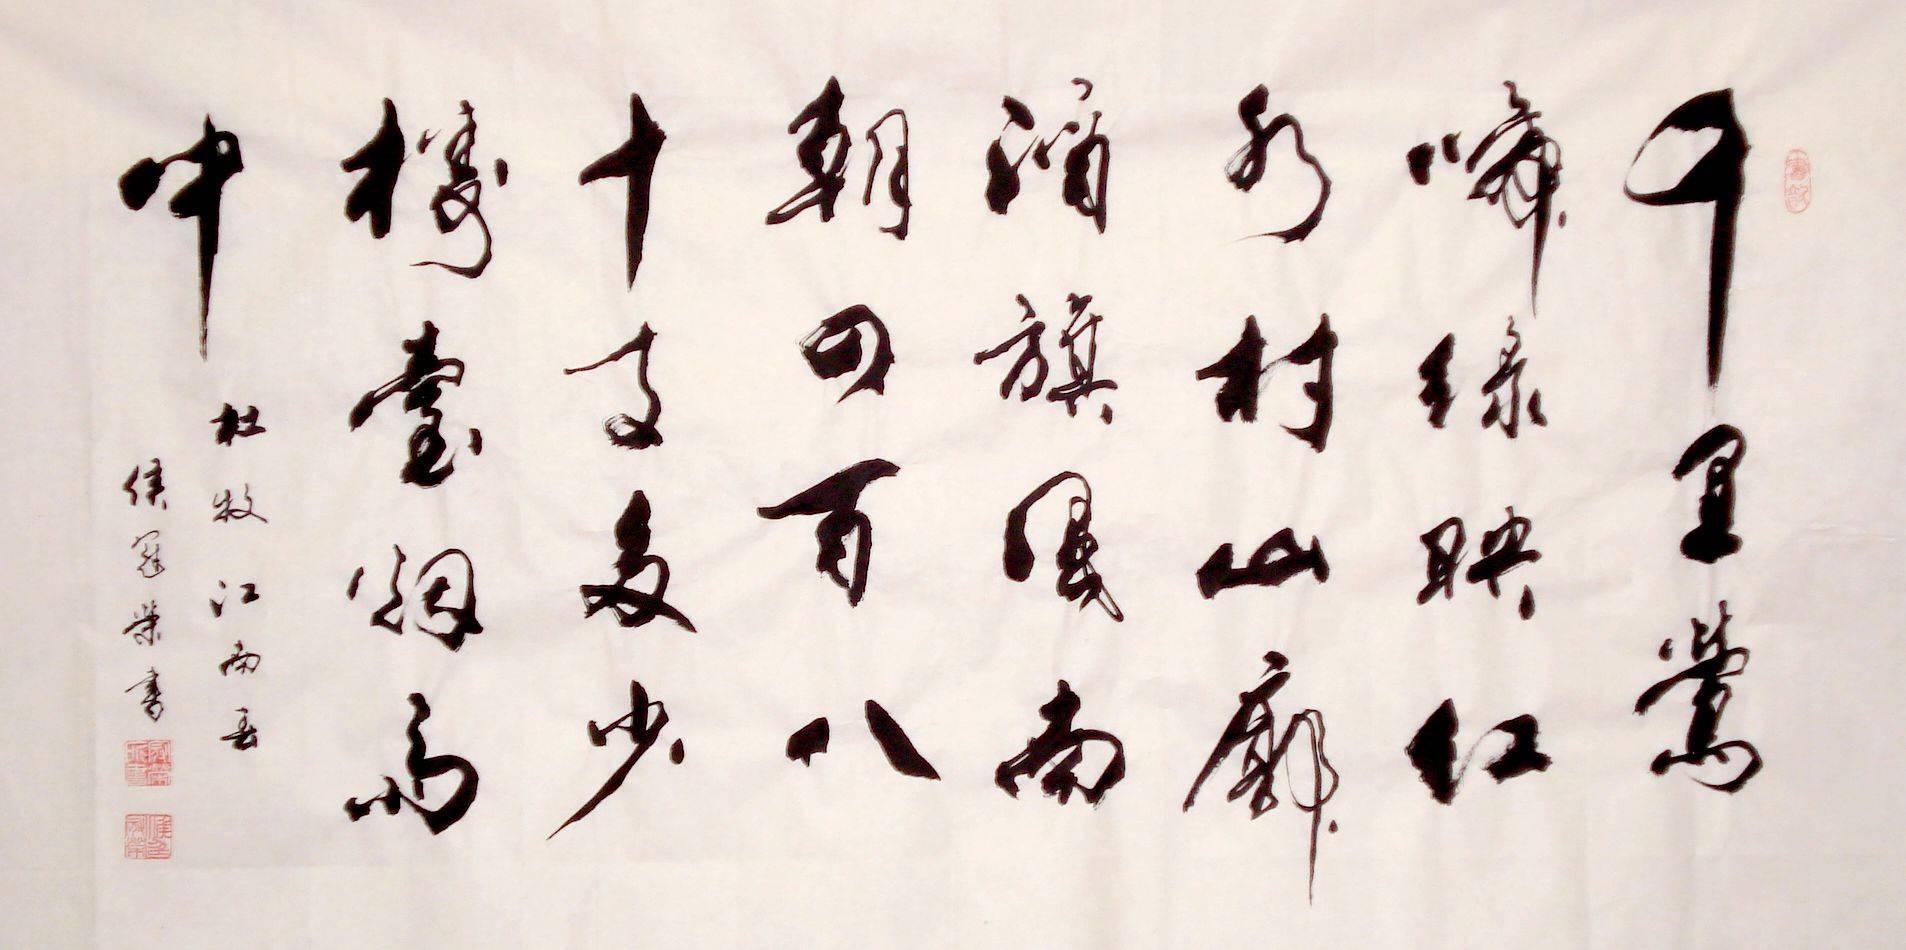 千里鶯
啼绿映红
水村山廓
酒旗風南
朝四百八
十寺多少
樓臺烟雨
中
杜牧江南春
侯冠荣書